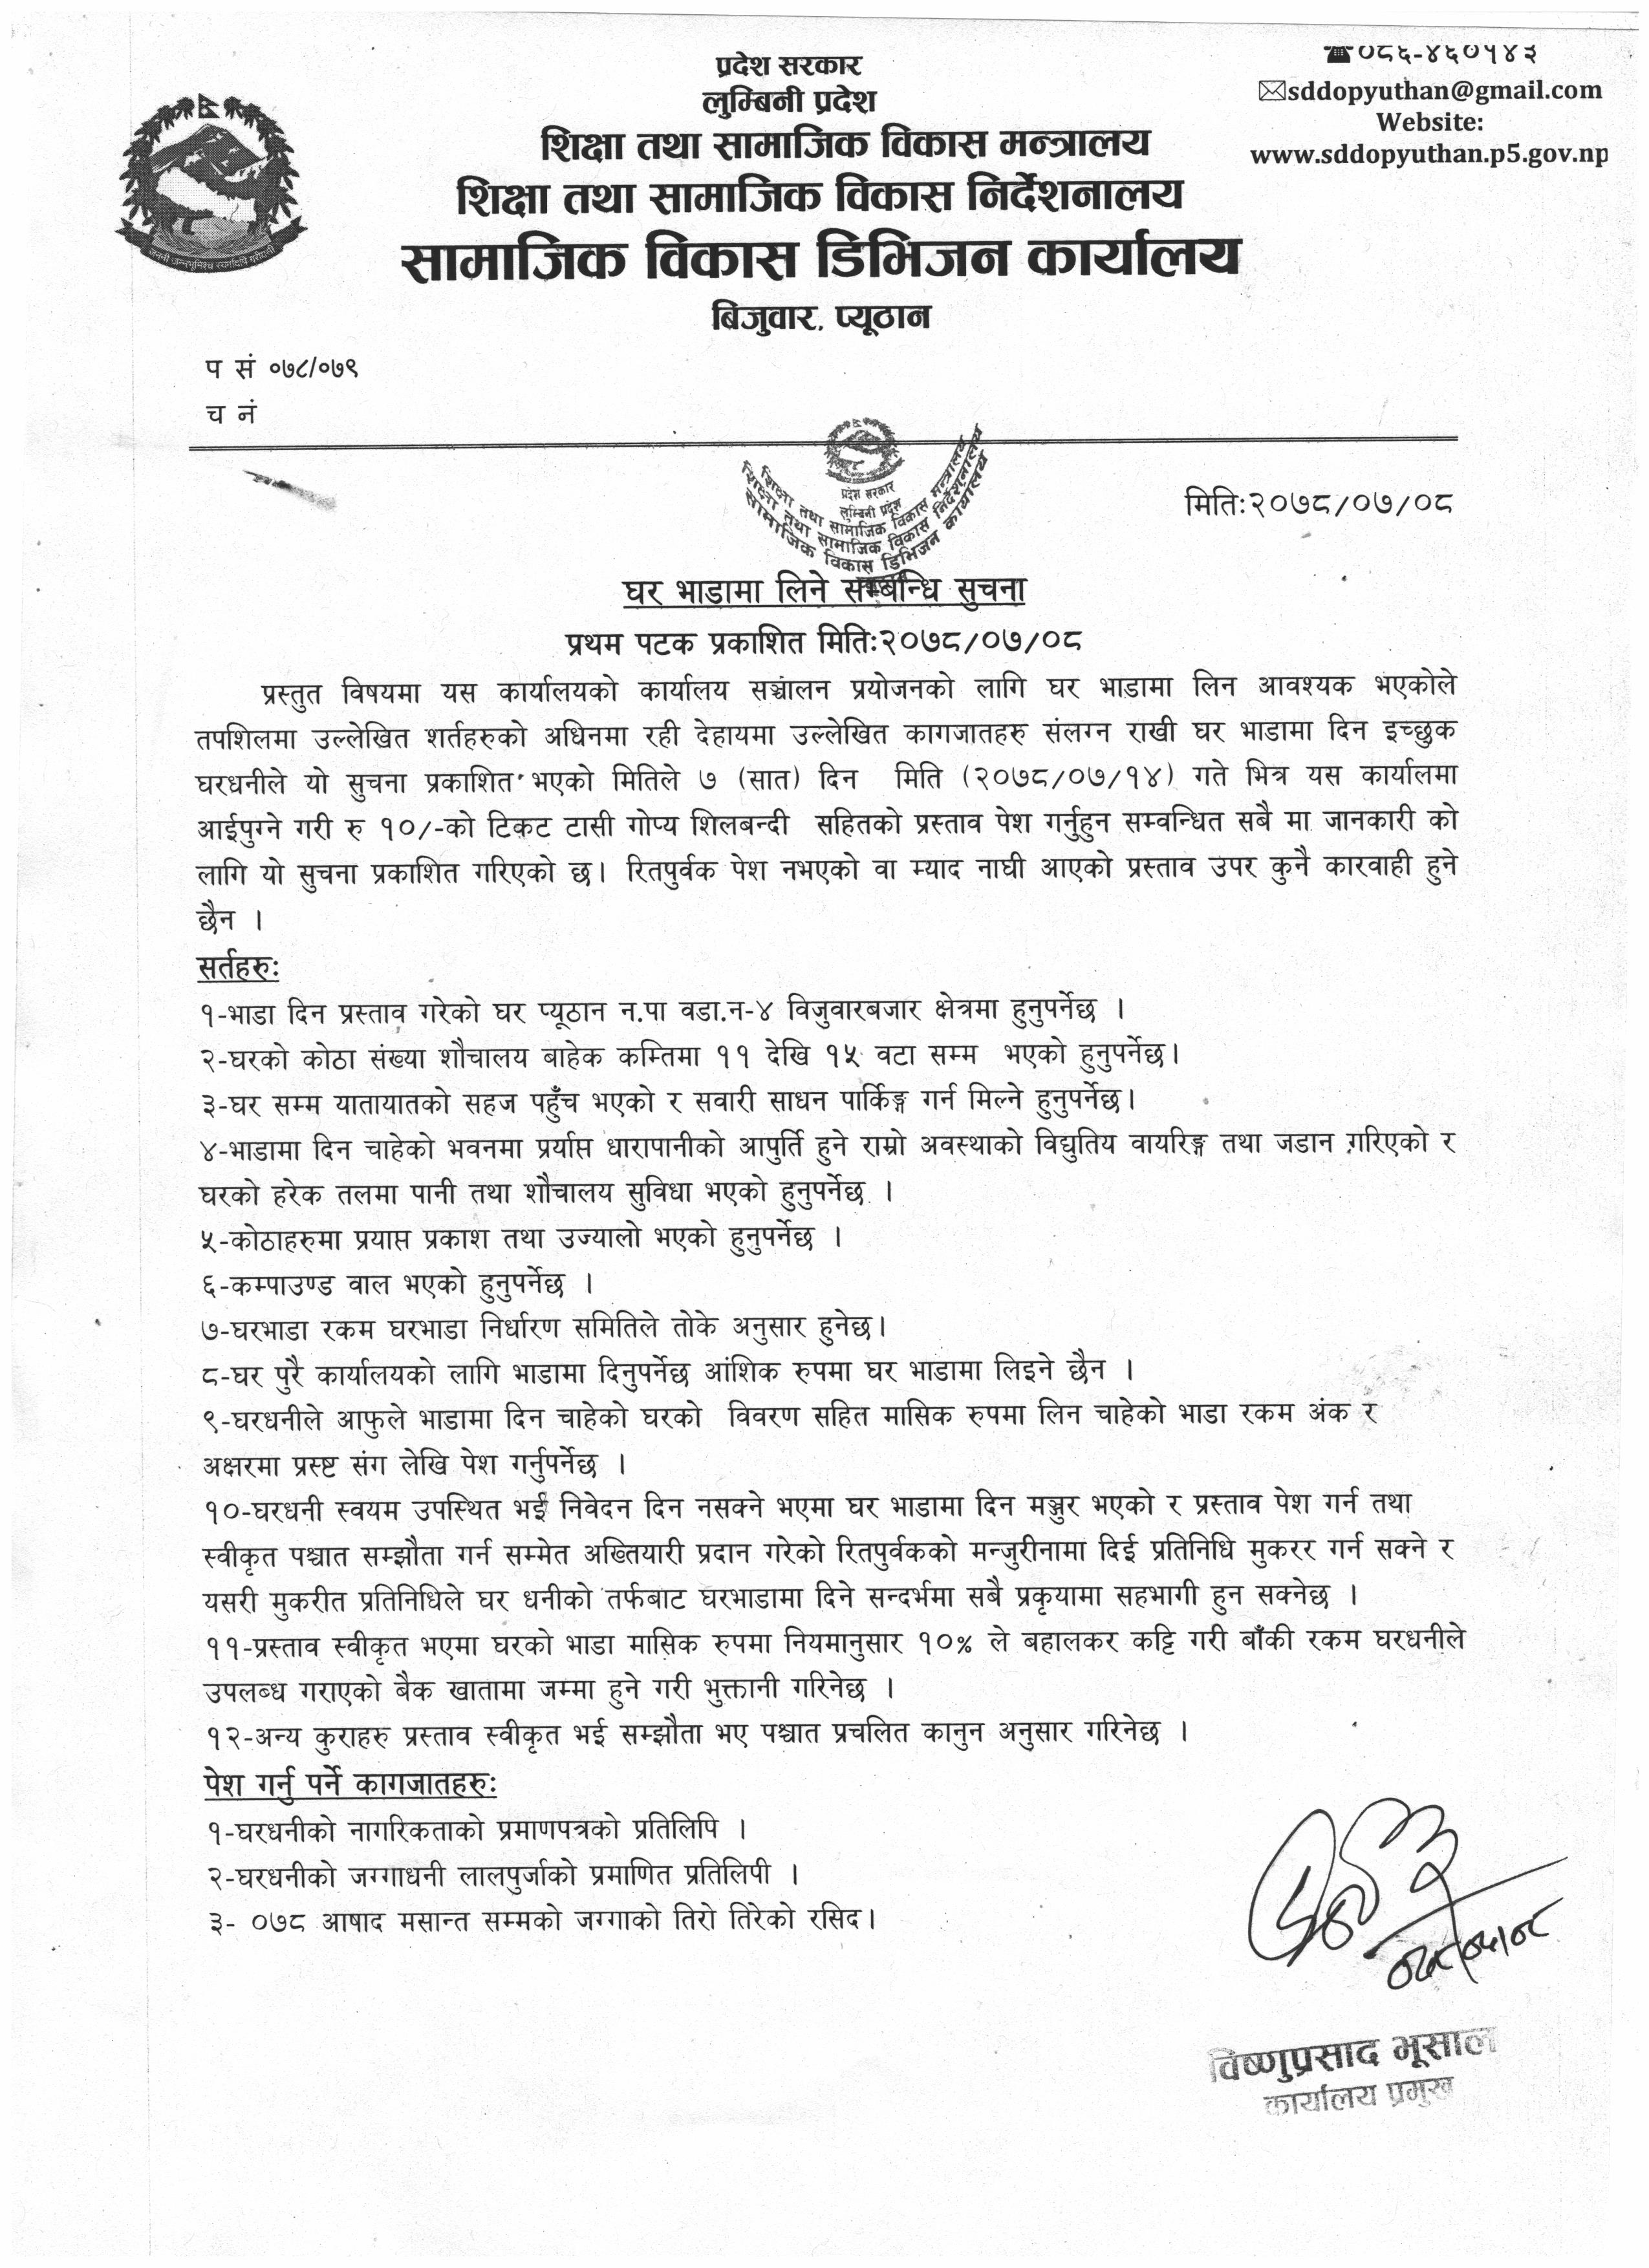 ☎०८६-४६०१४३
प्रदेश सरकार
लुम्बिनी प्रदेश
✉sddopyuthan@gmail.com
Website:
शिक्षा तथा सामाजिक विकास मन्त्रालय
www.sddopyuthan.p5.gov.np
शिक्षा तथा सामाजिक विकास निर्देशनालय
सामाजिक विकास डिभिजन कार्यालय
बिजुवार, प्यूठान
प सं ०७८/०७९
च नं
प्रदेश सरकार
लुम्बिनी प्रदेश
शिक्षा तथा सामाजिक विकास मन्त्रालय
शिक्षा तथा सामाजिक विकास निर्देशनालय
सामाजिक विकास डिभिजन कार्यालय
मितिः२०७८/०७/०८
घर भाडामा लिने सम्बन्धि सुचना
प्रथम पटक प्रकाशित मितिः२०७८/०७/०८
प्रस्तुत विषयमा यस कार्यालयको कार्यालय सञ्चालन प्रयोजनको लागि घर भाडामा लिन आवश्यक भएकोले
तपशिलमा उल्लेखित शर्तहरुको अधिनमा रही देहायमा उल्लेखित कागजातहरु संलग्न राखी घर भाडामा दिन इच्छुक
घरधनीले यो सुचना प्रकाशित भएको मितिले ७ (सात) दिन मिति (२०७८/०७/१४) गते भित्र यस कार्यालमा
आईपुग्ने गरी रु १०/-को टिकट टासी गोप्य शिलबन्दी सहितको प्रस्ताव पेश गर्नुहुन सम्वन्धित सबै मा जानकारी को
लागि यो सुचना प्रकाशित गरिएको छ। रितपुर्वक पेश नभएको वा म्याद नाघी आएको प्रस्ताव उपर कुनै कारवाही हुने
छैन ।
सर्तहरुः
१-भाडा दिन प्रस्ताव गरेको घर प्यूठान न.पा वडा.न-४ विजुवारबजार क्षेत्रमा हुनुपर्नेछ ।
२-घरको कोठा संख्या शौचालय बाहेक कम्तिमा ११ देखि १५ वटा सम्म भएको हुनुपर्नेछ।
३-घर सम्म यातायातको सहज पहुँच भएको र सवारी साधन पार्किङ्ग गर्न मिल्ने हुनुपर्नेछ।
४-भाडामा दिन चाहेको भवनमा प्रर्याप्त धारापानीको आपुर्ति हुने राम्रो अवस्थाको विद्युतिय वायरिङ्ग तथा जडान गरिएको र
घरको हरेक तलमा पानी तथा शौचालय सुविधा भएको हुनुपर्नेछ ।
५-कोठाहरुमा प्रयाप्त प्रकाश तथा उज्यालो भएको हुनुपर्नेछ ।
६-कम्पाउण्ड वाल भएको हुनुपर्नेछ ।
७-घरभाडा रकम घरभाडा निर्धारण समितिले तोके अनुसार हुनेछ।
८-घर पुरै कार्यालयको लागि भाडामा दिनुपर्नेछ आंशिक रुपमा घर भाडामा लिइने छैन ।
९-घरधनीले आफुले भाडामा दिन चाहेको घरको विवरण सहित मासिक रुपमा लिन चाहेको भाडा रकम अंक र
अक्षरमा प्रस्ष्ट संग लेखि पेश गर्नुपर्नेछ ।
१०-घरधनी स्वयम उपस्थित भई निवेदन दिन नसक्ने भएमा घर भाडामा दिन मञ्जुर भएको र प्रस्ताव पेश गर्न तथा
स्वीकृत पश्चात सम्झौता गर्न सम्मेत अख्तियारी प्रदान गरेको रितपुर्वकको मन्जुरीनामा दिई प्रतिनिधि मुकरर गर्न सक्ने र
यसरी मुकरीत प्रतिनिधिले घर धनीको तर्फबाट घरभाडामा दिने सन्दर्भमा सबै प्रकृयामा सहभागी हुन सक्नेछ ।
११-प्रस्ताव स्वीकृत भएमा घरको भाडा मासिक रुपमा नियमानुसार १०% ले बहालकर कट्टि गरी बाँकी रकम घरधनीले
उपलब्ध गराएको बैक खातामा जम्मा हुने गरी भुक्तानी गरिनेछ ।
१२-अन्य कुराहरु प्रस्ताव स्वीकृत भई सम्झौता भए पश्चात प्रचलित कानुन अनुसार गरिनेछ ।
पेश गर्नु पर्ने कागजातहरुः
१-घरधनीको नागरिकताको प्रमाणपत्रको प्रतिलिपि ।
२-घरधनीको जग्गाधनी लालपुर्जाको प्रमाणित प्रतिलिपी ।
३- ०७८ आषाद मसान्त सम्मको जग्गाको तिरो तिरेको रसिद।
विष्णुप्रसाद भूसाल
कार्यालय प्रमुख